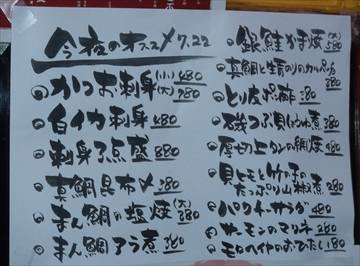 今夜のオススメ 7.22
かつお刺身 (小)480 (大)780
白イカ刺身 480
刺身3点盛 880
真鯛昆布〆 380
まん鯛の塩焼 (大)380
まん鯛アラ煮 380
銀鮭かま焼 (大)580
真鯛と生青のりのカルパッチョ 380
とり皮ポン酢 380
磯つぶ貝しょうゆ煮 380
厚切上タンの網焼 480
貝ヒモと竹の子のたっぷり山椒煮 280
パクチーサラダ 480
サーモンのマリネ 380
モロヘイヤのおひたし 180